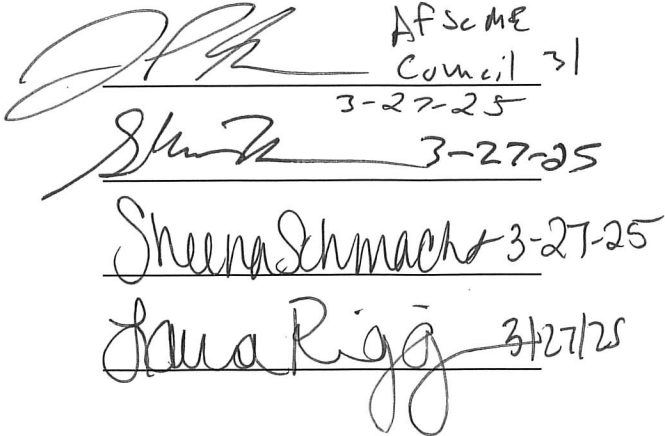 AFSCME
Council 31
3-27-25
3-27-25
Sheena Schmacht 3-27-25
Laura Rigg 3/27/25